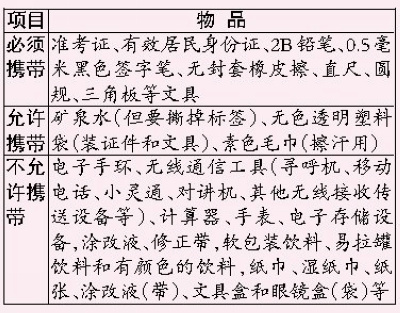 项目 物品
必须携带 准考证、有效居民身份证、2B铅笔、0.5毫
米黑色签字笔、无封套橡皮擦、直尺、圆
规、三角板等文具
允许携带 矿泉水(但要撕掉标签)、无色透明塑料
袋(装证件和文具)、素色毛巾(擦汗用)
不允许携带 电子手环、无线通信工具(寻呼机、移动
电话、小灵通、对讲机、其他无线接收传
送设备等)、计算器、手表、电子存储设
备,涂改液、修正带,软包装饮料、易拉罐
饮料和有颜色的饮料,纸巾、湿纸巾、纸
张、涂改液(带)、文具盒和眼镜盒(袋)等